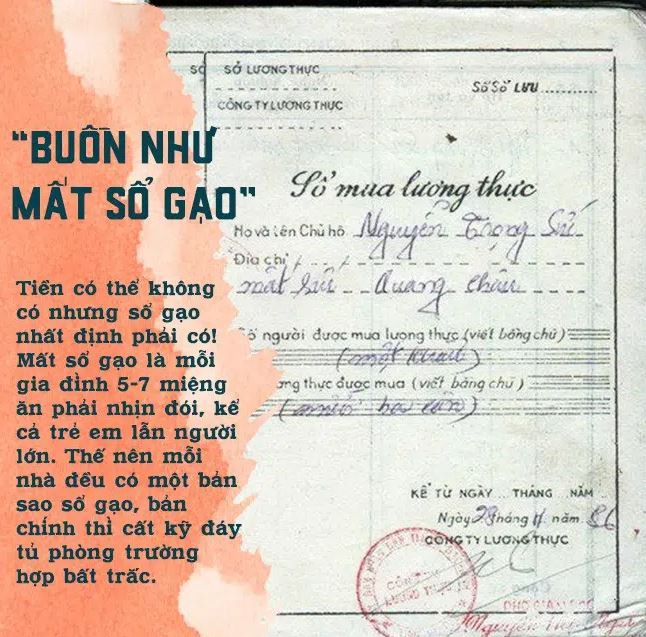 “BUỒN NHƯ
MẤT SỔ GẠO”
Tiền có thể không
có nhưng sổ gạo
nhất định phải có!
Mất sổ gạo là mỗi
gia đình 5-7 miệng
ăn phải nhịn đói, kể
cả trẻ em lẫn người
lớn. Thế nên mỗi
nhà đều có một bản
sao sổ gạo, bản
chính thì cất kỹ đáy
tủ phòng trường
hợp bất trắc.
SỞ LƯƠNG THỰC
CÔNG TY LƯƠNG THỰC
Số Sổ LƯU
Sổ mua lương thực
Họ và tên Chủ hộ Nguyễn Trọng Sử
Địa chỉ
Quang Châu
người được mua lương thực (viết bằng chữ)
(một khẩu)
thực được mua (viết bằng chữ)
KỂ TỪ NGÀY ... THÁNG ... NĂM
Ngày 28 tháng 11 năm 86
CÔNG TY LƯƠNG THỰC